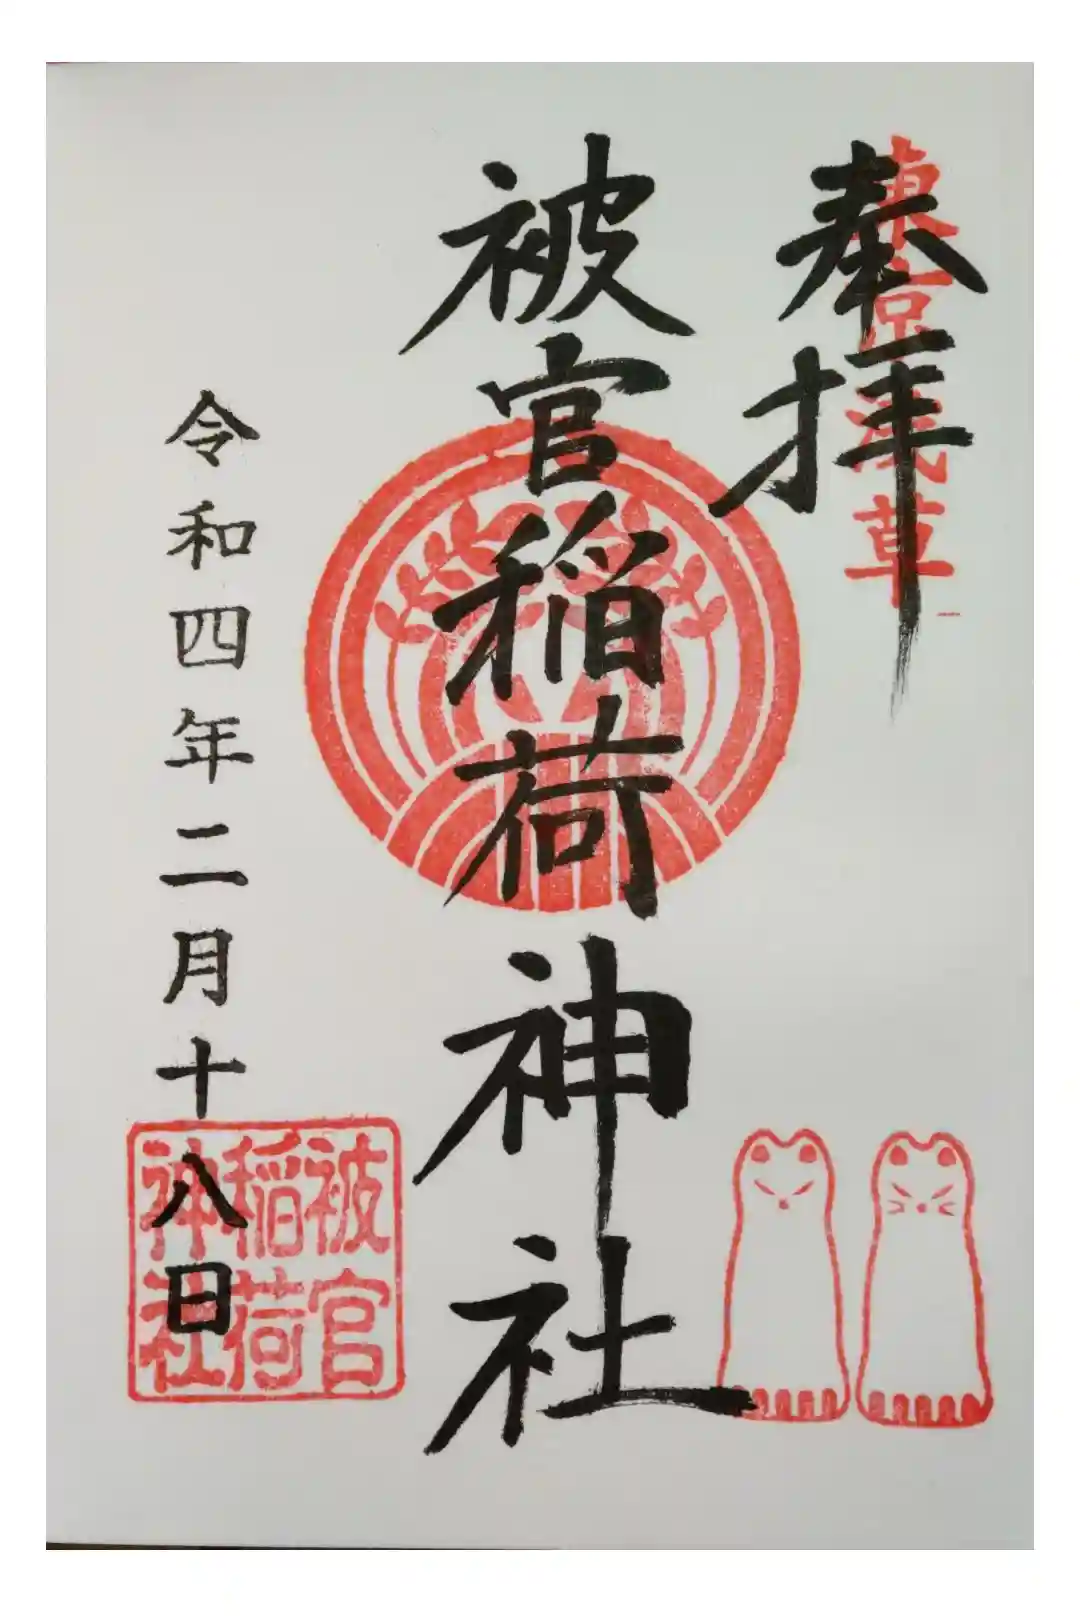 奉拝
東京浅草
被官稲荷神社
令和四年二月十八日
被官
稲荷
神社